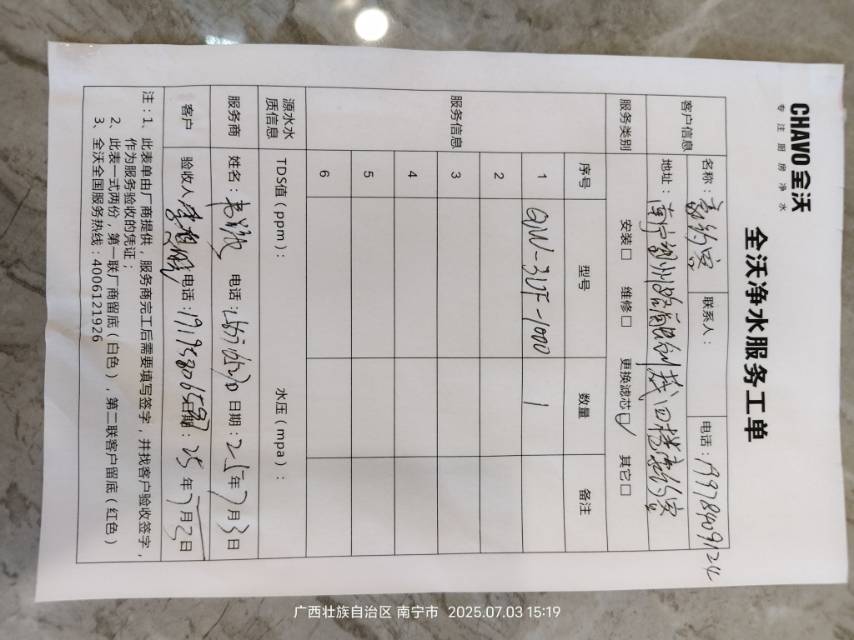 CHAVO全沃
专注厨房净水
全沃净水服务工单
客户信息 名称： 联系人： 电话：19978409124
地址：
服务类别 安装□ 维修□ 更换滤芯☑ 其它□
服务信息 序号 型号 数量 备注
1 QW-3UF-1000 1
2
3
4
5
6
源水水质信息 TDS值（ppm）： 水压（mpa）：
服务商 姓名： 电话： 日期：25年7月3日
客户 验收人： 电话： 日期：25年7月3日
注：1、此表单由厂商提供，服务商完工后需要填写签字，并找客户验收签字，
作为服务验收的凭证；
2、此表一式两份，第一联厂商留底（白色），第二联客户留底（红色）
3、全沃全国服务热线：4006121926
广西壮族自治区 南宁市 2025.07.03 15:19